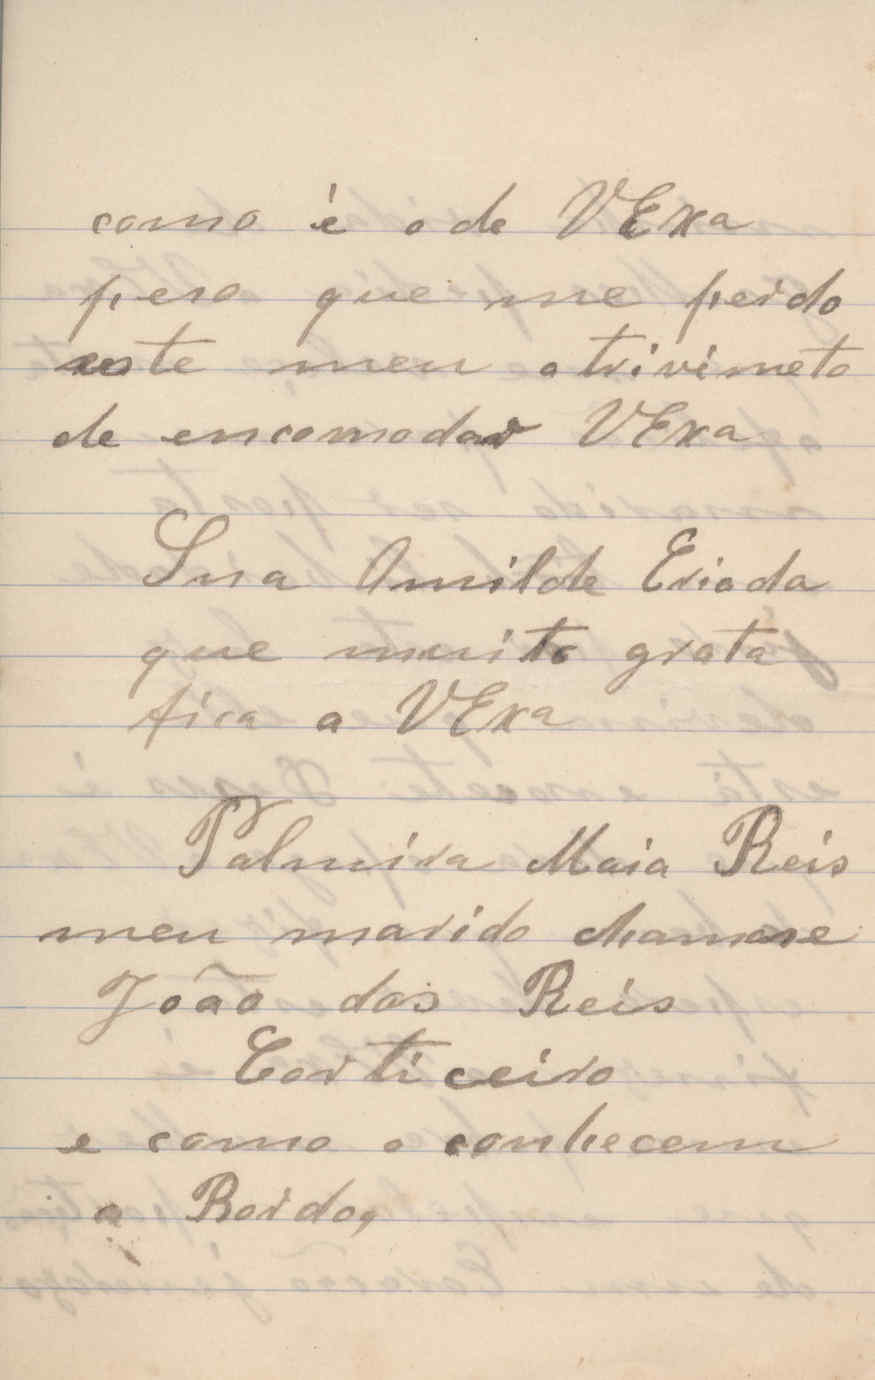 como è o de VExa
peso que me perdo
este meu atrivimeto
de encomodar VExa
Sua Omilde Criada
que muito grata
fica a VExa
Palmira Maia Reis
meu marido chamase
João dos Reis
Corticeiro
e como o conhecem
a Bordo,